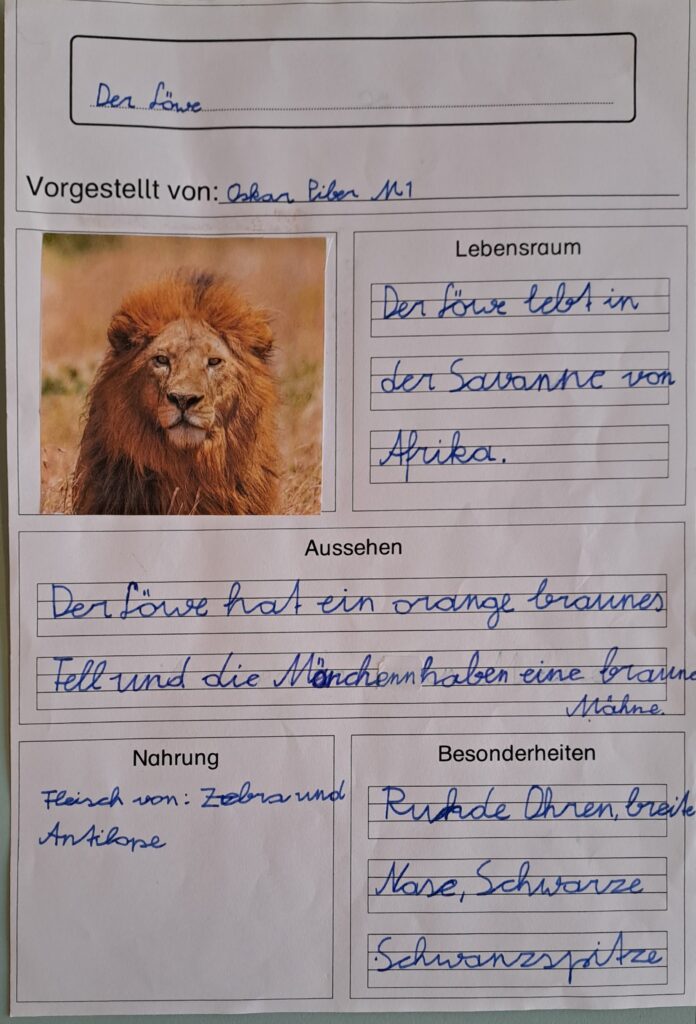 Der Löwe
Vorgestellt von: Oskar Piber M1
Lebensraum
Der Löwe lebt in
der Savanne von
Afrika.
Aussehen
Der Löwe hat ein orange braunes
Fell und die Mänchenn haben eine braune
Mähne.
Nahrung
Fleisch von: Zebra und
Antilope
Besonderheiten
Runde Ohren, breite
Nase, Schwarze
Schwanzspitze